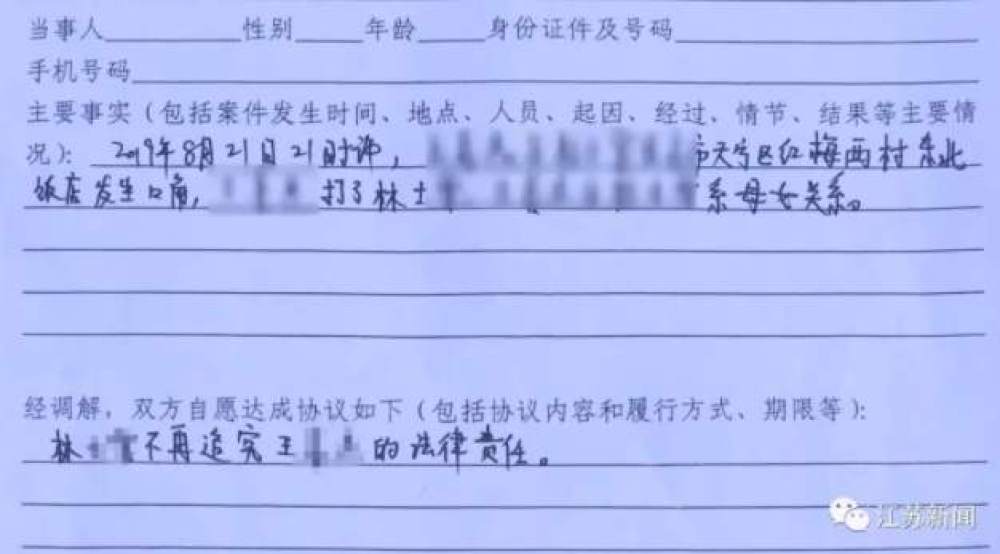 当事人 性别 年龄 身份证件及号码
手机号码
主要事实（包括案件发生时间、地点、人员、起因、经过、情节、结果等主要情
况）：2019年8月21日21时许， 市天宁区红梅西村东北
饭店发生口角， 打了林士 系母女关系。
经调解，双方自愿达成协议如下（包括协议内容和履行方式、期限等）：
林 不再追究王 的法律责任。
江苏新闻